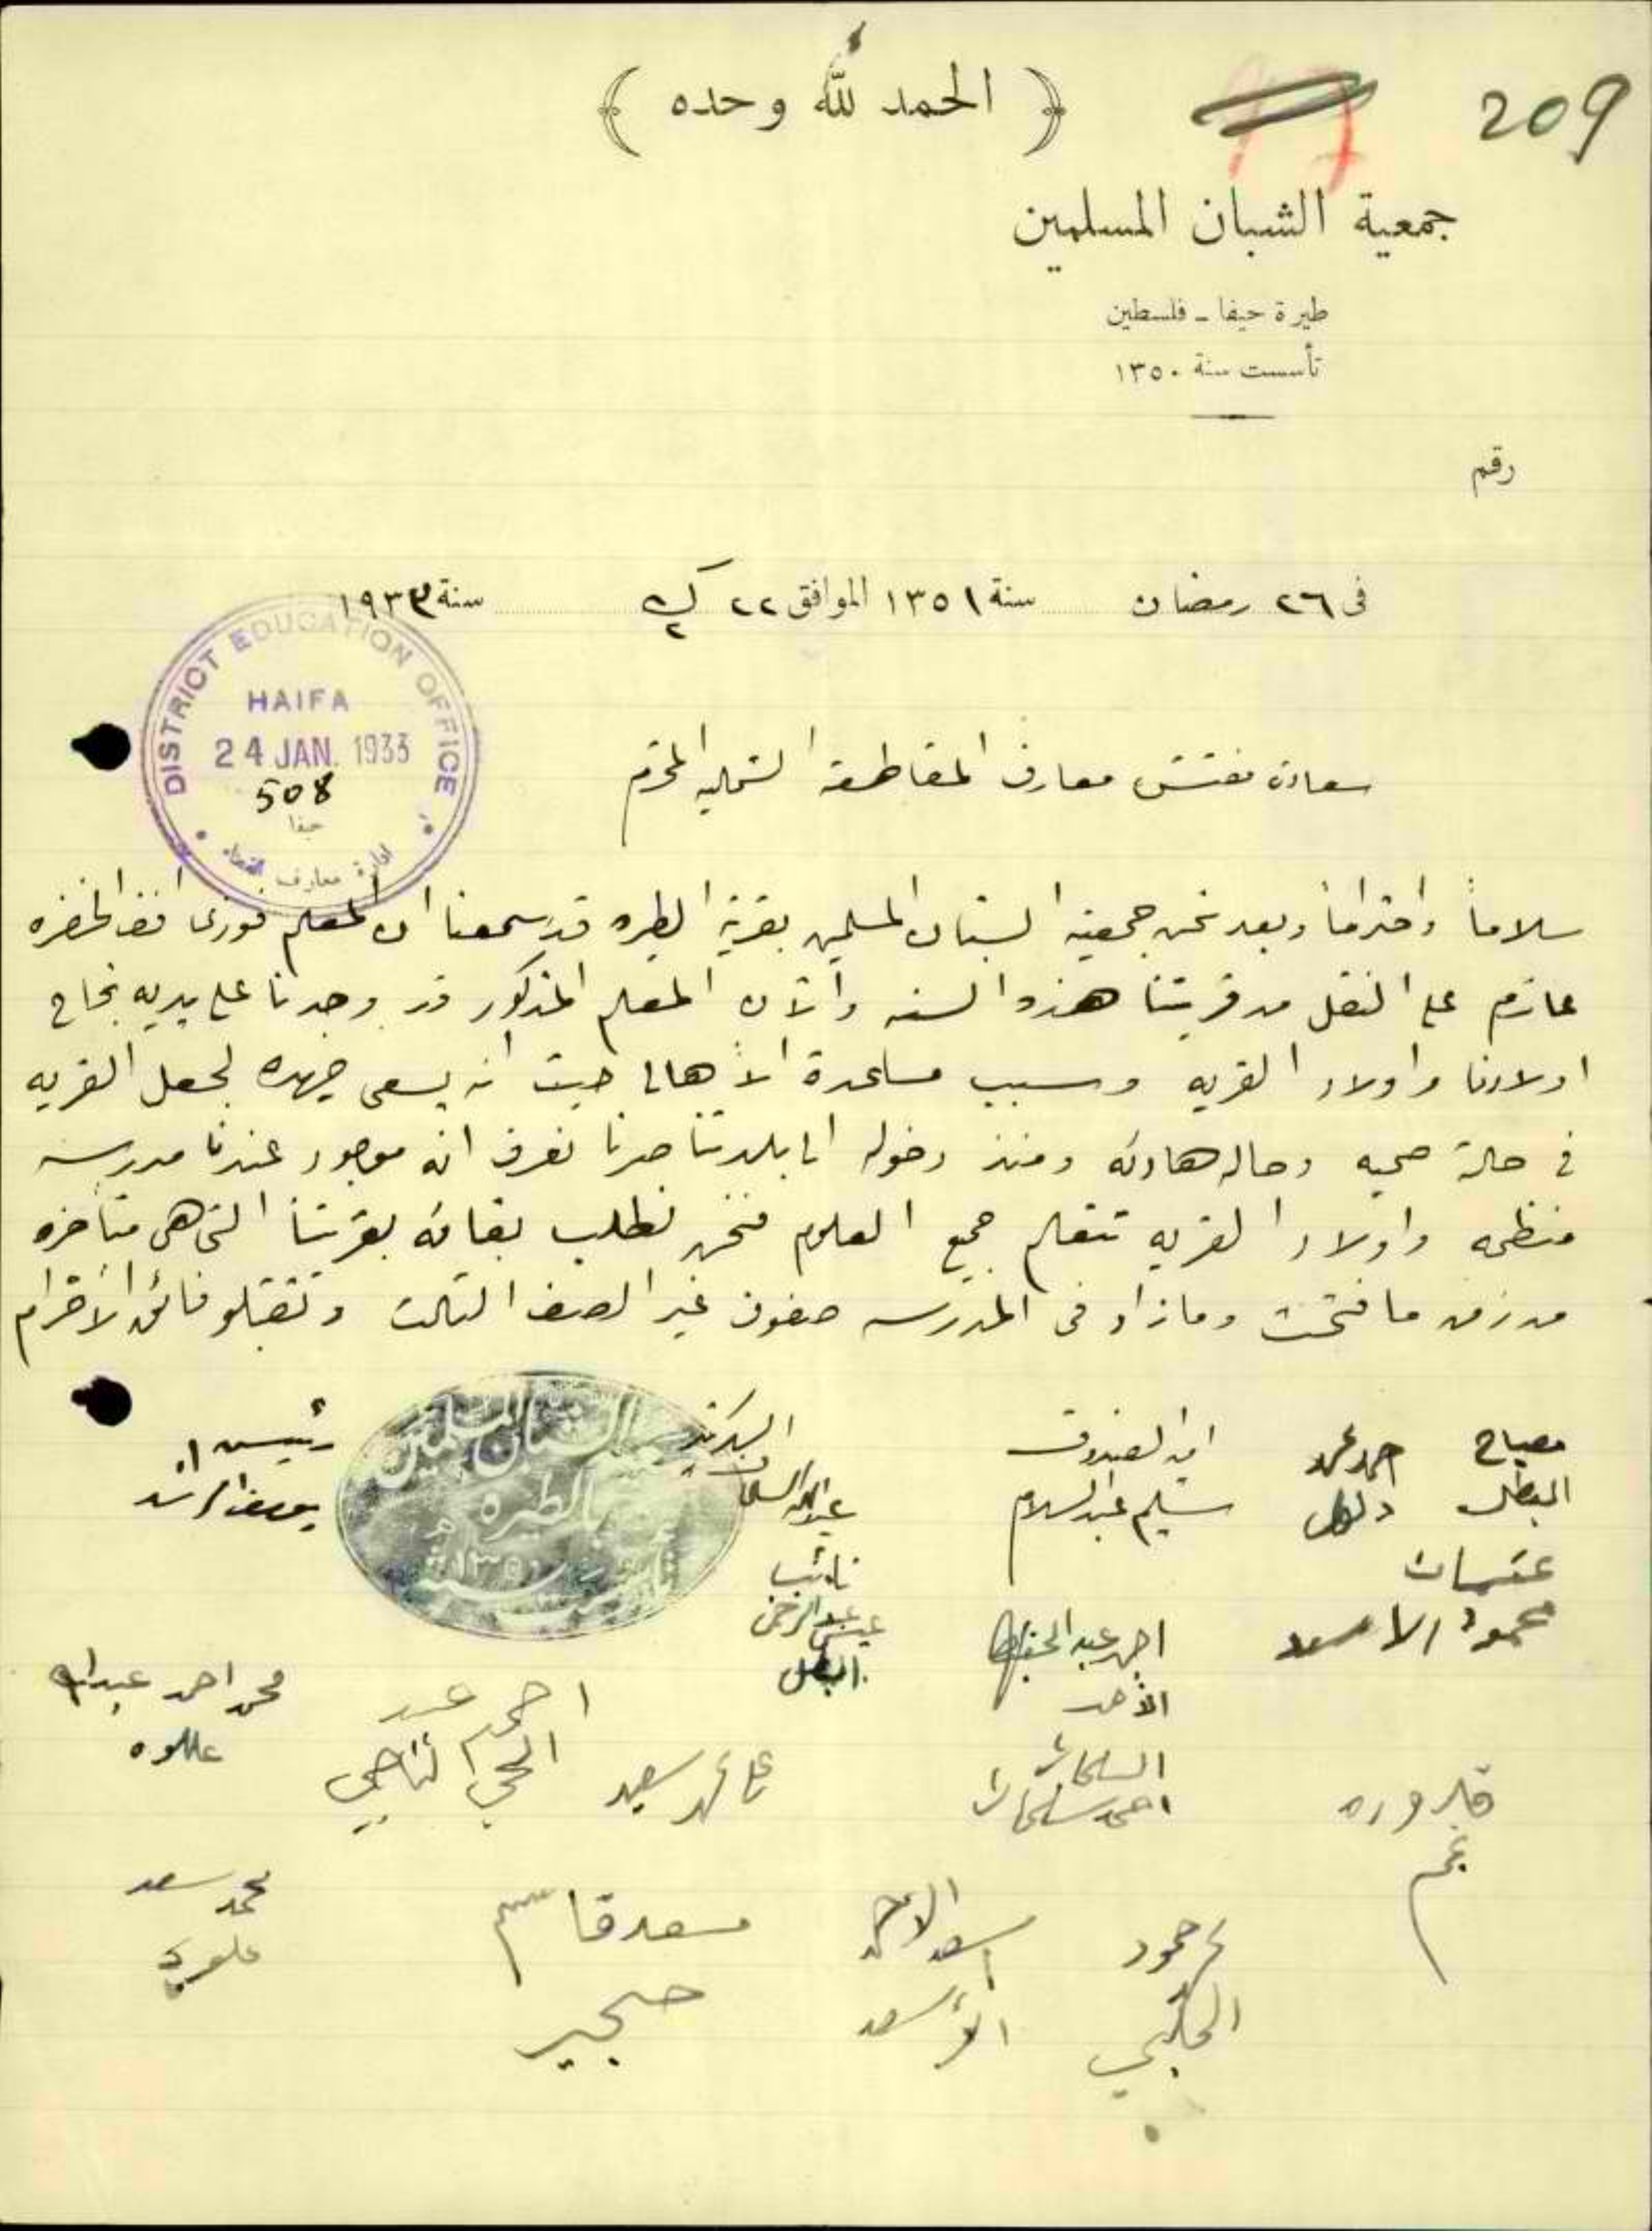 209
﴿ الحمد لله وحده ﴾
جمعية الشبان المسلمين
طيرة حيفا - فلسطين
تأسست سنة ١٣٥٠
رقم
فى ٢٦ رمضان سنة ١٣٥١ الموافق ٢٢ ك٢ سنة ١٩٣٣
DISTRICT EDUCATION OFFICE
HAIFA
24 JAN. 1933
508
حيفا
ادارة معارف القضاء
سعادة مفتش معارف المقاطعة الشماليه المحترم
سلاماً واحتراماً وبعد نحن جمعية الشبان المسلمين بقرية الطيره قد سمعنا ان المعلم فوزى الخضره
عازم على النقل من قريتنا هذه السنه والآن المعلم المذكور قد وجدنا على يديه نجاح
اولادنا واولاد القريه وسبب مساعدة الأهالى حيث انه يسعى جهده لجعل القريه
في حالة صحيه وحاله هادئه ومنذ دخوله الى بلدتنا صرنا نعرف انه موجود عندنا مدرسه
منظمه واولاد القريه تتعلم جميع العلوم فنحن نطلب بقائه بقريتنا التى هى متأخره
من زمن ما فتحت وما زاد فى المدرسه صفوف غير الصف الثالث وتقبلو فائق الأحترام
رئيس
يوسف الراشد
الشبان المسلمين
بالطيره
١٣٥٠
السكرتير
نائب
عيسى عبد الرحمن
البطل
امين الصندوق
سليم عبد السلام
احمد محمد
مصباح
البطل
محمود الاسعد
احمد عبد الحفيظ
الأحمد
محمد احمد عبدالله
علوه
احمد عبد
الحي الناجي
على محمد سعيد
السلمان
احمد سلمان
قدوره
نجم
محمد سعد
سعد قاسم
حجير
اسعد الاحمد
الأسعد
محمود
الحلبي